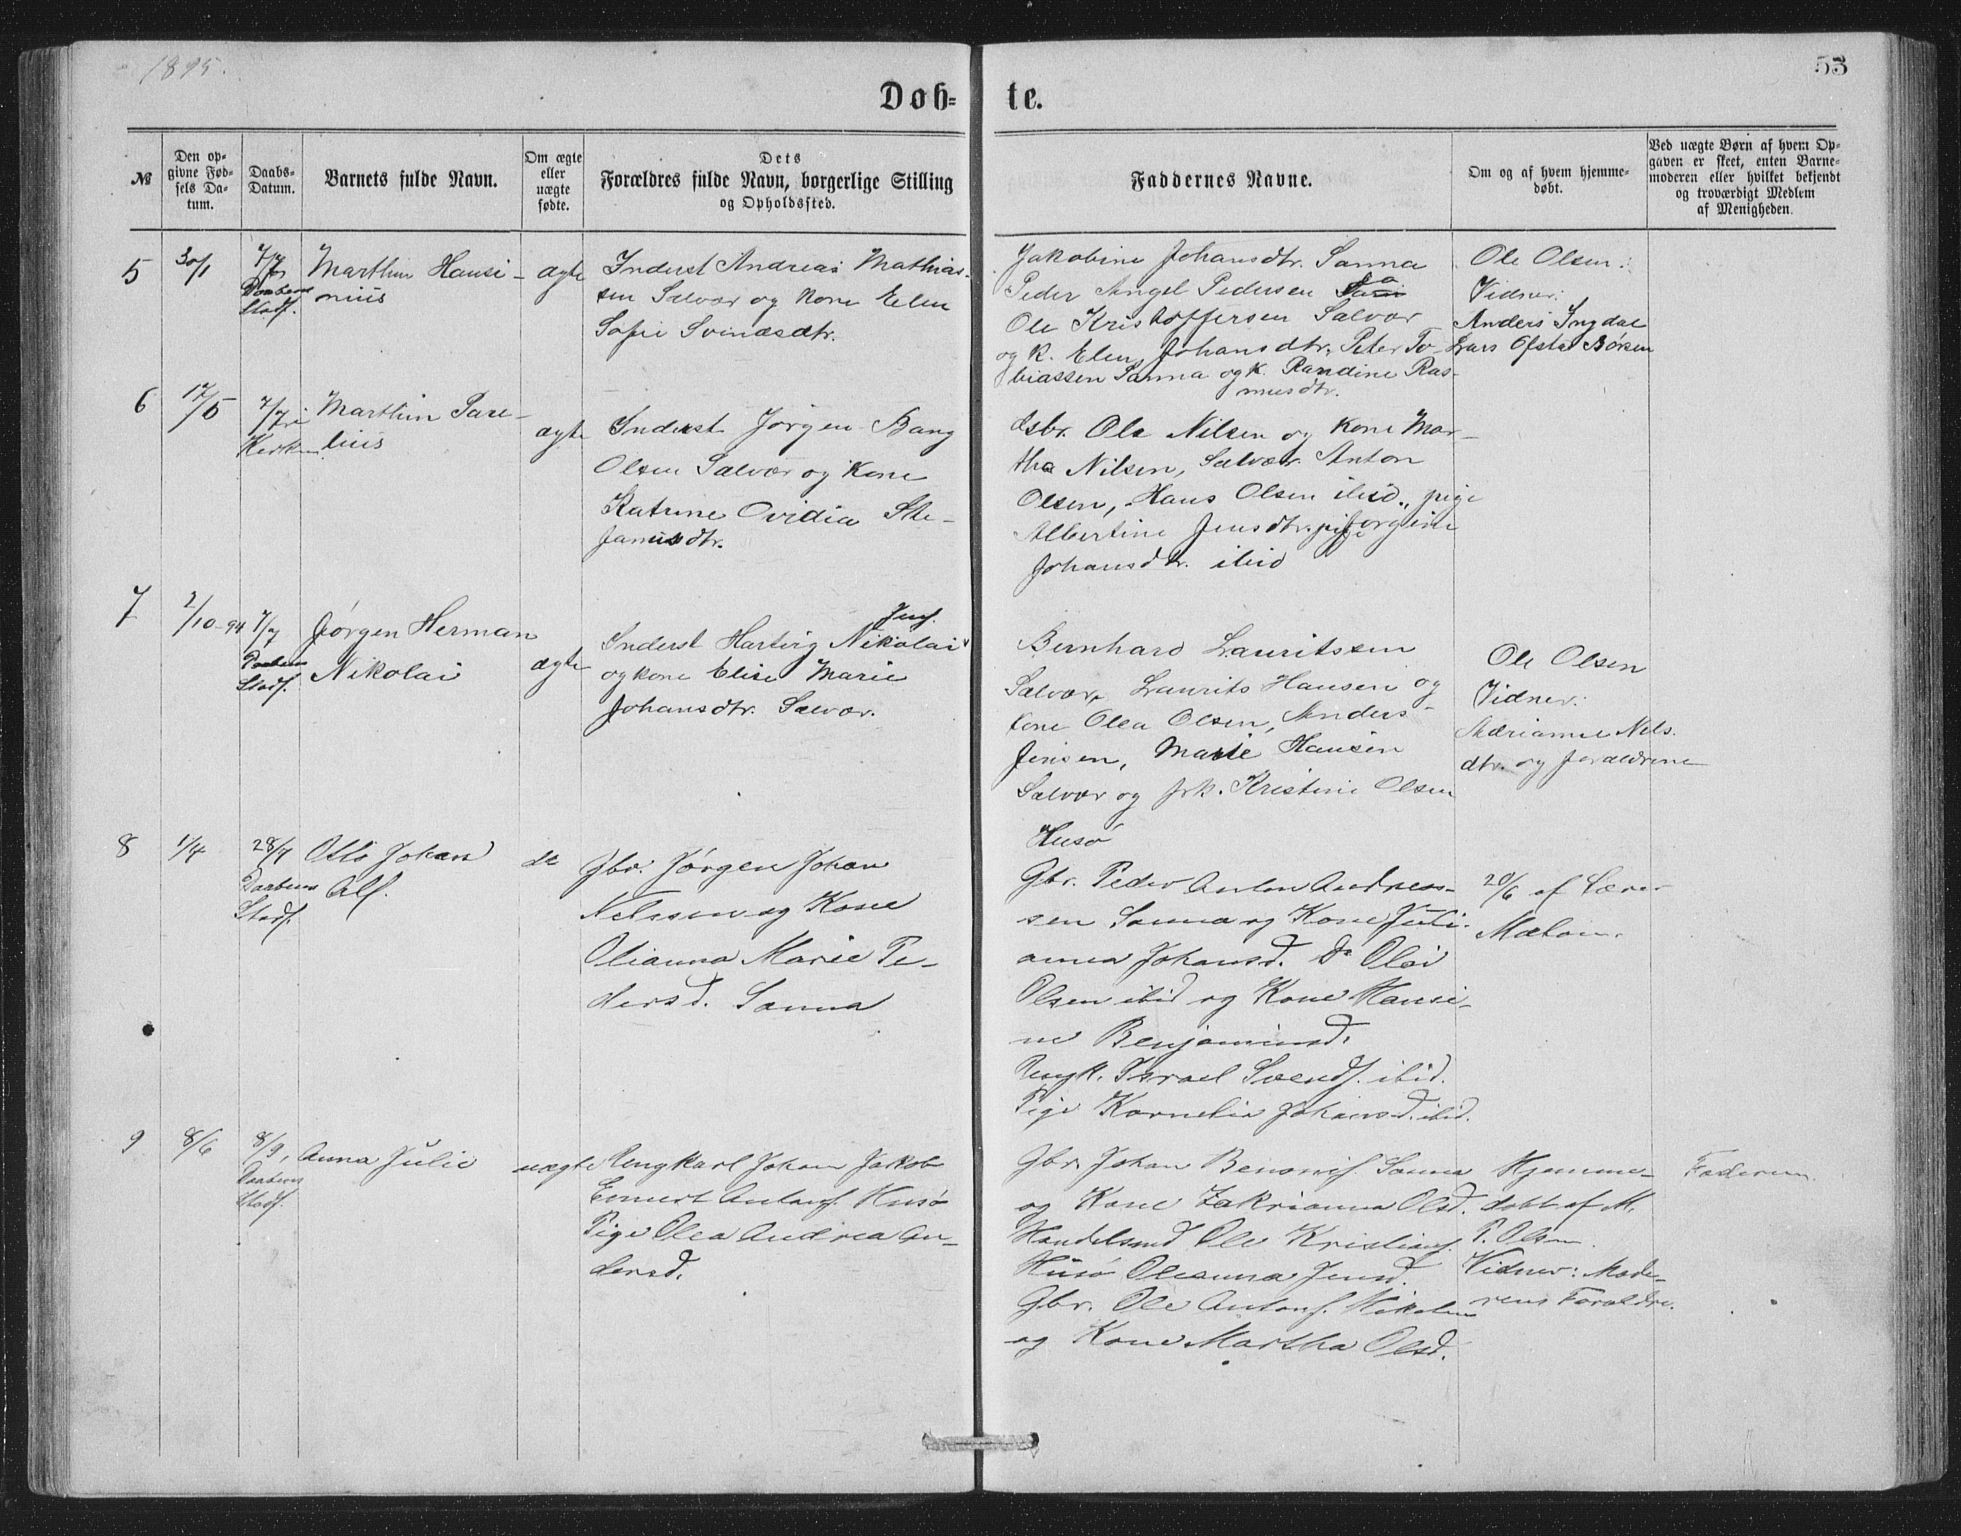 1895.
55
Døb-
te.
№
Den op-
givne Fød-
sels Da-
tum.
Daabs-
Datum.
Barnets fulde Navn.
Om ægte
eller
uægte
fødte.
Dets
Forældres fulde Navn, borgerlige Stilling
og Opholdssted.
Faddernes Navne.
Om og af hvem hjemme-
døbt.
Ved uægte Børn af hvem Op-
gaven er skeet, enten Barne-
moderen eller hvilket bekjendt
og troværdigt Medlem
af Menigheden.
5
30/1
7/7
Daabens
Stadf.
Marthin Hansi-
nius
ægte
Inderst Andreas Mathias-
sen Selvær og Kone Elen
Sofie Svinæsdtr.
Jakobine Johansdtr. Sanna
Peder Angel Pedersen
Ole Kristoffersen Selvær
og K. Elen Johansdtr. Peter To-
biassen Sanna og K. Randine Ras-
musdtr.
Ole Olsen:
Vidner:
Anders Ingdal
Lars Ofsta Børsen
6
17/5
7/7 i
Kirken
Marthin Pare-
lius
ægte
Inderst Jørgen Bang
Olsen Selvær og Kone
Katrine Ovidia Ste-
fanusdtr.
Gbr. Ole Nilsen og Kone Mar-
tha Nilsen, Selvær. Anton
Olsen, Hans Olsen ibid., pige
Albertine Jensdtr. pige Jørgine
Johansdtr. ibid
7
2/10-94
7/7
Daabens
Stadf.
Jørgen Herman
Nikolai
ægte
Inderst Hartvig Nikolai
Jensf.
og kone Elise Marie
Johansdtr. Selvær.
Bernhard Lauritssen
Selvær, Laurits Hansen og
kone Olea Olsen, Anders
Jensen, Marie Hansen
Selvær og frk. Kristine Olsen
Husø
Ole Olsen
Vidner:
Adrianne Nils.
dtr. og forældrene
8
1/4
28/7
Daabens
Stadf.
Otto Johan
Alf.
do
Gbr. Jørgen Johan
Nelssen og Kone
Olianna Marie Pe-
dersd. Sanna
Gbr. Peder Anton Andreas-
sen Sanna og Kone Juli-
anna Johansd. Do Olai
Olsen ibid og Kone Hansi-
ne Benjaminsd.
Ungk. Israel Svendf. ibid.
Pige Kornelia Johansd. ibid.
20/6 af Lærer
9
8/6
8/9,
Daabens
Stadf.
Anna Julie
uægte
Ungkarl Johan Jakob
Emmert Antonf. Husø
Pige Olea Andrea An-
dersd.
Gbr. Johan Benonif. Sanna
og Kone Zakrianna Olsd.
Handelsmd Ole Kristianf.
Husø Oleanna Jensd.
Gbr. Ole Antonf.
og Kone Martha Olsd.
Hjemme-
døbt af M.
P. Olsen.
Vidner: Mode-
rens Forældre.
Faderen